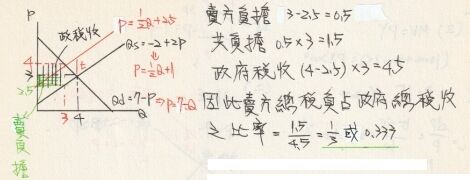 P
政稅收
P=½Q+2.5
Qs=-2+2P
P=½Q+1
4
3
2.5
t
Qd=7-P⇒P=7-Q
3 4
Q
賣方負擔
賣方負擔 3-2.5=0.5
共負擔 0.5×3=1.5
政府稅收 (4-2.5)×3=4.5
因此賣方總稅負占政府總稅收
之比率=1.5/4.5=1/3或0.333